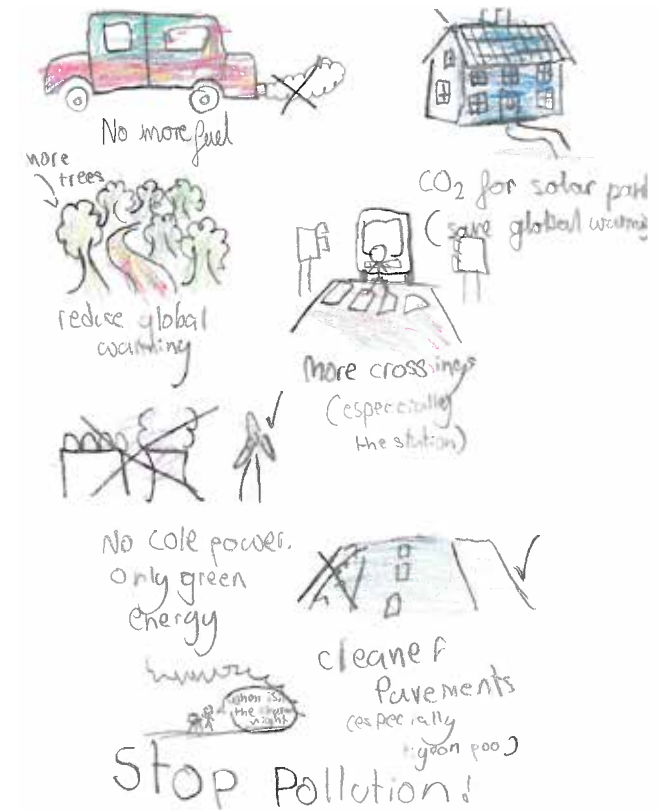 No more fuel
more
trees
CO₂ for solar
(save global
reduce global
warming
more crossings
(especially
the station)
No cole power.
only green
energy
cleaner
Pavements
(especially
poo)
when is
the
night
Stop Pollution!